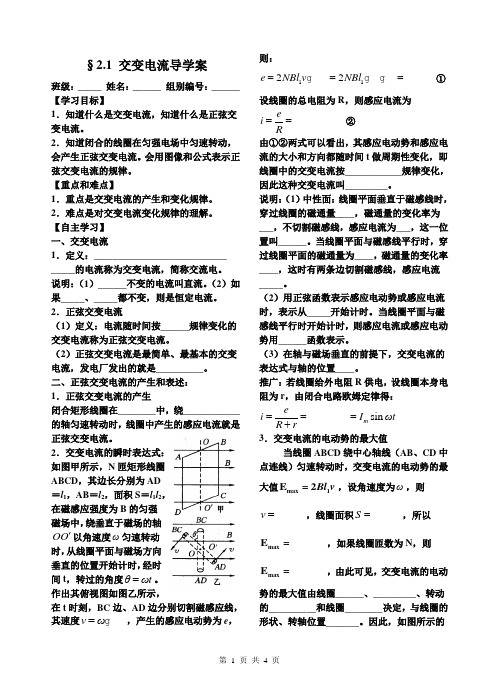 §2.1 交变电流导学案
班级：_____ 姓名：______ 组别编号：______
【学习目标】
1．知道什么是交变电流，知道什么是正弦交
变电流。
2．知道闭合的线圈在匀强电场中匀速转动，
会产生正弦交变电流。会用图像和公式表示正
弦交变电流的规律。
【重点和难点】
1．重点是交变电流的产生和变化规律。
2．难点是对交变电流变化规律的理解。
【自主学习】
一、交变电流
1．定义：____________________________
_____的电流称为交变电流，简称交流电。
说明：（1）______不变的电流叫直流。（2）如
果_____、_____都不变，则是恒定电流。
2．正弦交变电流
（1）定义：电流随时间按______规律变化的
交变电流称为正弦交变电流。
（2）正弦交变电流是最简单、最基本的交变
电流，发电厂发出的就是__________。
二、正弦交变电流的产生和表述：
1．正弦交变电流的产生
闭合矩形线圈在________中，绕____________
的轴匀速转动时，线圈中产生的感应电流就是
正弦交变电流。
2．交变电流的瞬时表达式：
如图甲所示，N 匝矩形线圈
ABCD，其边长分别为 AD
＝l₁，AB＝l₂，面积 S＝l₁l₂，
在磁感应强度为 B 的匀强
磁场中，绕垂直于磁场的轴
OO′以角速度ω匀速转动
时，从线圈平面与磁场方向
垂直的位置开始计时，经时
间 t，转过的角度θ＝ωt。
作出其俯视图如图乙所示，
在 t 时刻，BC 边、AD 边分别切割磁感应线，
其速度 v＝ωg ，产生的感应电动势为 e，
O B
A
B
C
D
O′ 甲
BC
BC
B
v
O
O′
v
AD
AD 乙
则：
e＝2NBl₁vg ＝2NBl₁g g ＝ ①
设线圈的总电阻为 R，则感应电流为
i＝e/R＝ ②
由①②两式可以看出，其感应电动势和感应电
流的大小和方向都随时间 t 做周期性变化，即
线圈中的交变电流按____________规律变化，
因此这种交变电流叫_________。
说明：（1）中性面：线圈平面垂直于磁感线时，
穿过线圈的磁通量____，磁通量的变化率为
___，不切割磁感线，感应电流为___，这一位
置叫______。当线圈平面与磁感线平行时，穿
过线圈平面的磁通量为____，磁通量的变化率
____，这时有两条边切割磁感线，感应电流
_____。
（2）用正弦函数表示感应电动势或感应电流
时，表示从_____开始计时。当线圈平面与磁
感线平行时开始计时，则感应电流或感应电动
势用______函数表示。
（3）在轴与磁场垂直的前提下，交变电流的
表达式与轴的位置____。
推广：若线圈给外电阻 R 供电，设线圈本身电
阻为 r，由闭合电路欧姆定律得：
i＝e/(R＋r)＝ ＝Iₘsinωt
3．交变电流的电动势的最大值
当线圈 ABCD 绕中心轴线（AB、CD 中
点连线）匀速转动时，交变电流的电动势的最
大值 Emax＝2Bl₁v，设角速度为ω，则
v＝ ，线圈面积 S＝ ，所以
Emax＝ ，如果线圈匝数为 N，则
Emax＝ ，由此可见，交变电流的电动
势的最大值由线圈______、_________、转动
的__________和线圈________决定，与线圈的
形状、转轴位置_______。因此，如图所示的
第 1 页 共 4 页